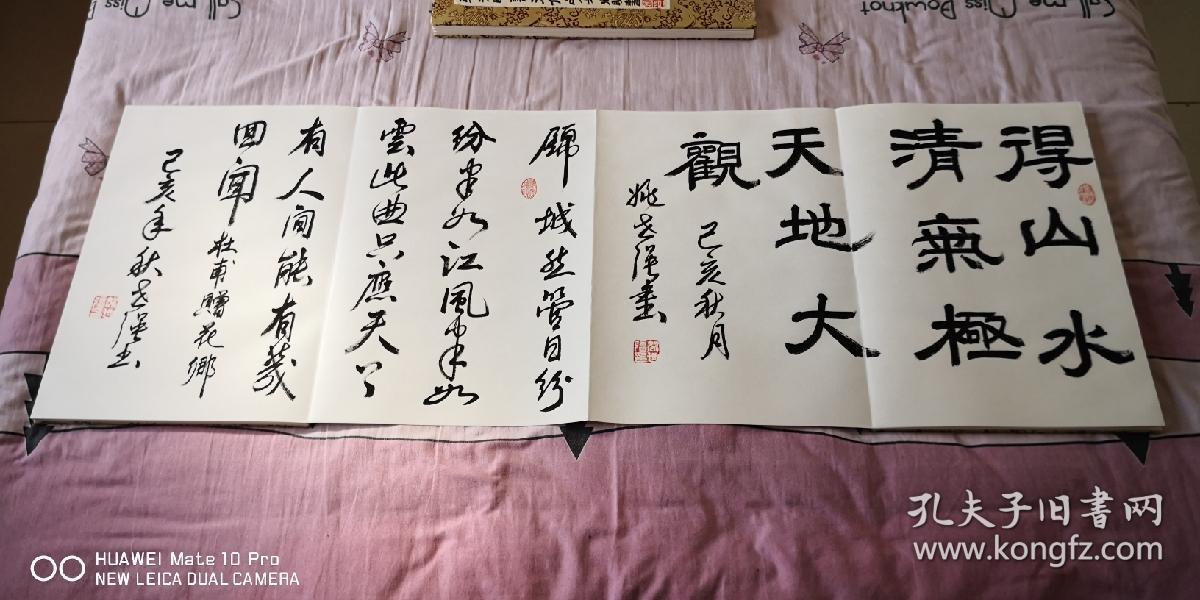 Call me Miss Bowknot
得山水
清氣極
天地大
觀
己亥秋月
姚世澤書
錦城丝管日紛
紛半入江風半入
雲此曲只應天上
有人间能有幾
回聞
杜甫贈花卿
己亥年秋
孔夫子旧书网
www.kongfz.com
HUAWEI Mate 10 Pro
NEW LEICA DUAL CAMERA